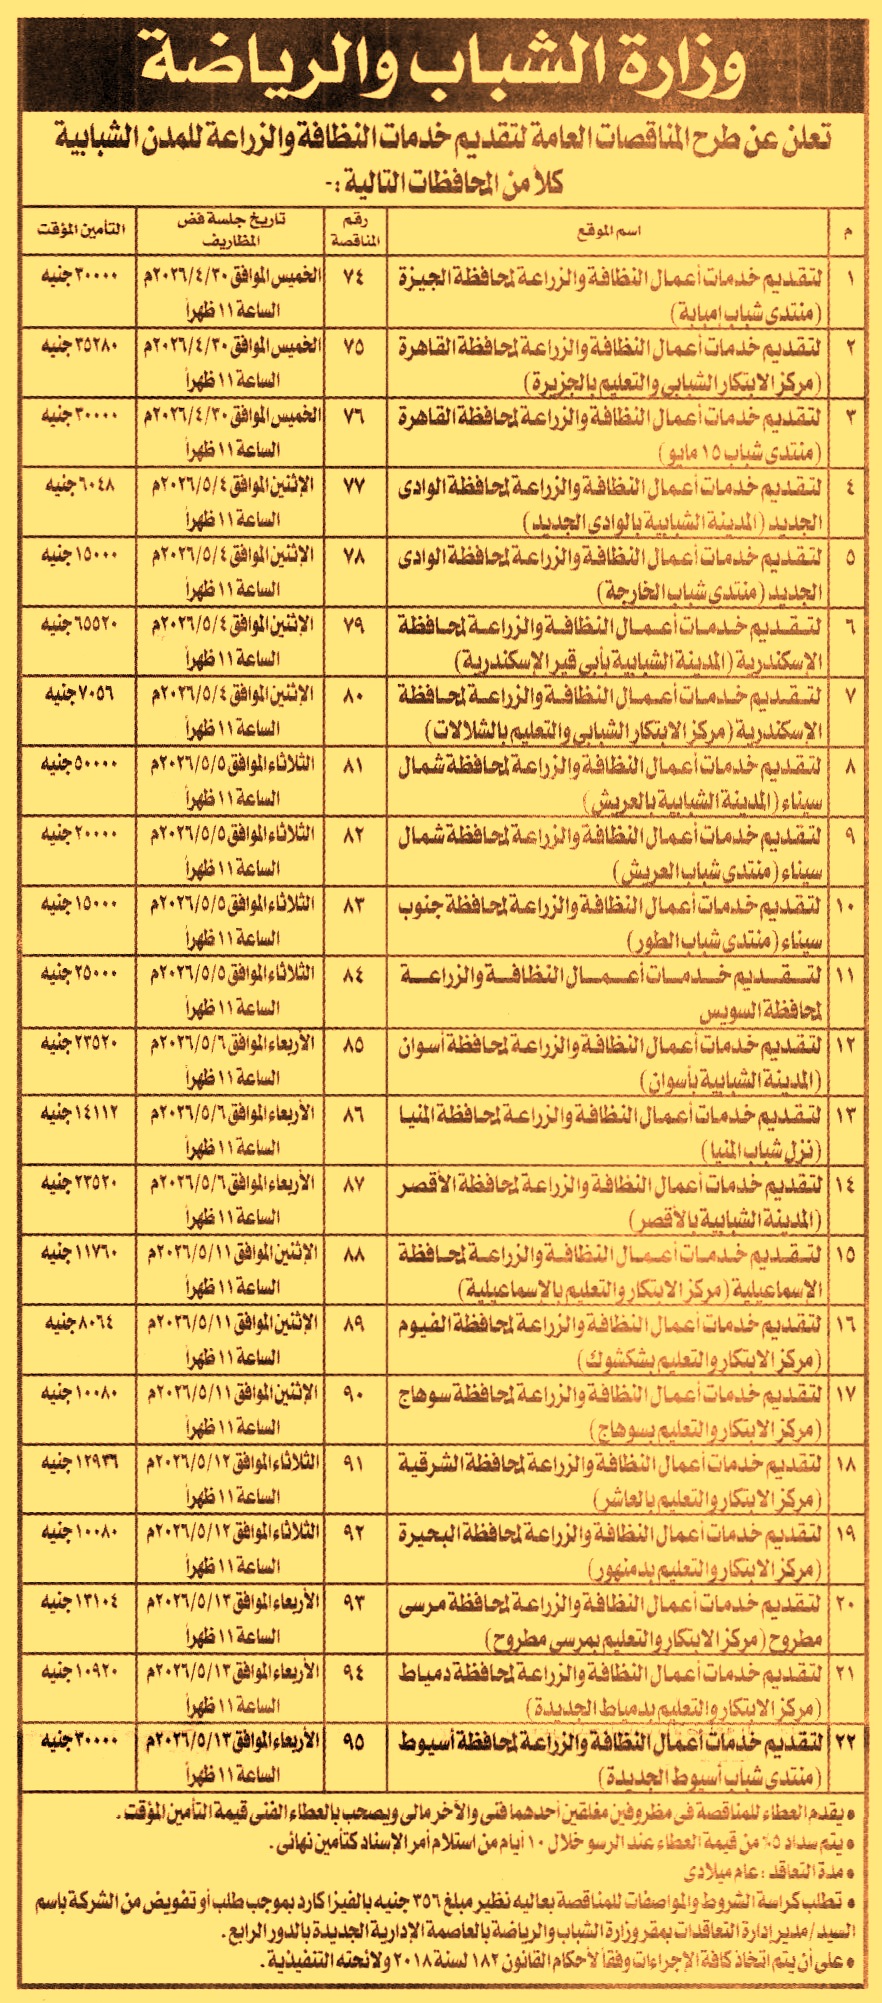 وزارة الشباب والرياضة
تعلن عن طرح المناقصات العامة لتقديم خدمات النظافة والزراعة للمدن الشبابية
كلاً من المحافظات التالية :-
م اسم الموقع رقم المناقصة تاريخ جلسة فض المظاريف التأمين المؤقت
١ لتقديم خدمات أعمال النظافة والزراعة لمحافظة الجيزة ٧٤ الخميس الموافق ٢٠٢٦/٤/٣٠م ٣٠٠٠٠ جنيه
(منتدى شباب إمبابة) الساعة ١١ ظهراً
٢ لتقديم خدمات أعمال النظافة والزراعة لمحافظة القاهرة ٧٥ الخميس الموافق ٢٠٢٦/٤/٣٠م ٣٥٢٨٠ جنيه
(مركز الابتكار الشبابى والتعليم بالجزيرة) الساعة ١١ ظهراً
٣ لتقديم خدمات أعمال النظافة والزراعة لمحافظة القاهرة ٧٦ الخميس الموافق ٢٠٢٦/٤/٣٠م ٣٠٠٠٠ جنيه
(منتدى شباب ١٥ مايو) الساعة ١١ ظهراً
٤ لتقديم خدمات أعمال النظافة والزراعة لمحافظة الوادى ٧٧ الإثنين الموافق ٢٠٢٦/٥/٤م ٦٠٤٨ جنيه
الجديد (المدينة الشبابية بالوادى الجديد) الساعة ١١ ظهراً
٥ لتقديم خدمات أعمال النظافة والزراعة لمحافظة الوادى ٧٨ الإثنين الموافق ٢٠٢٦/٥/٤م ١٥٠٠٠ جنيه
الجديد (منتدى شباب الخارجة) الساعة ١١ ظهراً
٦ لتقديم خدمات أعمال النظافة والزراعة لمحافظة ٧٩ الإثنين الموافق ٢٠٢٦/٥/٤م ٦٥٥٢٠ جنيه
الإسكندرية (المدينة الشبابية بأبى قير الإسكندرية) الساعة ١١ ظهراً
٧ لتقديم خدمات أعمال النظافة والزراعة لمحافظة ٨٠ الإثنين الموافق ٢٠٢٦/٥/٤م ٧٠٥٦ جنيه
الإسكندرية (مركز الابتكار الشبابى والتعليم بالشلالات) الساعة ١١ ظهراً
٨ لتقديم خدمات أعمال النظافة والزراعة لمحافظة شمال ٨١ الثلاثاء الموافق ٢٠٢٦/٥/٥م ٥٠٠٠٠ جنيه
سيناء (المدينة الشبابية بالعريش) الساعة ١١ ظهراً
٩ لتقديم خدمات أعمال النظافة والزراعة لمحافظة شمال ٨٢ الثلاثاء الموافق ٢٠٢٦/٥/٥م ٢٠٠٠٠ جنيه
سيناء (منتدى شباب العريش) الساعة ١١ ظهراً
١٠ لتقديم خدمات أعمال النظافة والزراعة لمحافظة جنوب ٨٣ الثلاثاء الموافق ٢٠٢٦/٥/٥م ١٥٠٠٠ جنيه
سيناء (منتدى شباب الطور) الساعة ١١ ظهراً
١١ لتقديم خدمات أعمال النظافة والزراعة ٨٤ الثلاثاء الموافق ٢٠٢٦/٥/٥م ٢٥٠٠٠ جنيه
لمحافظة السويس الساعة ١١ ظهراً
١٢ لتقديم خدمات أعمال النظافة والزراعة لمحافظة أسوان ٨٥ الأربعاء الموافق ٢٠٢٦/٥/٦م ٢٣٥٢٠ جنيه
(المدينة الشبابية بأسوان) الساعة ١١ ظهراً
١٣ لتقديم خدمات أعمال النظافة والزراعة لمحافظة المنيا ٨٦ الأربعاء الموافق ٢٠٢٦/٥/٦م ١٤١١٢ جنيه
(نزل شباب المنيا) الساعة ١١ ظهراً
١٤ لتقديم خدمات أعمال النظافة والزراعة لمحافظة الأقصر ٨٧ الأربعاء الموافق ٢٠٢٦/٥/٦م ٢٣٥٢٠ جنيه
(المدينة الشبابية بالأقصر) الساعة ١١ ظهراً
١٥ لتقديم خدمات أعمال النظافة والزراعة لمحافظة ٨٨ الإثنين الموافق ٢٠٢٦/٥/١١م ١١٧٦٠ جنيه
الإسماعيلية (مركز الابتكار والتعليم بالإسماعيلية) الساعة ١١ ظهراً
١٦ لتقديم خدمات أعمال النظافة والزراعة لمحافظة الفيوم ٨٩ الإثنين الموافق ٢٠٢٦/٥/١١م ٨٠٦٤ جنيه
(مركز الابتكار والتعليم بشكشوك) الساعة ١١ ظهراً
١٧ لتقديم خدمات أعمال النظافة والزراعة لمحافظة سوهاج ٩٠ الإثنين الموافق ٢٠٢٦/٥/١١م ١٠٠٨٠ جنيه
(مركز الابتكار والتعليم بسوهاج) الساعة ١١ ظهراً
١٨ لتقديم خدمات أعمال النظافة والزراعة لمحافظة الشرقية ٩١ الثلاثاء الموافق ٢٠٢٦/٥/١٢م ١٢٩٣٦ جنيه
(مركز الابتكار والتعليم بالعاشر) الساعة ١١ ظهراً
١٩ لتقديم خدمات أعمال النظافة والزراعة لمحافظة البحيرة ٩٢ الثلاثاء الموافق ٢٠٢٦/٥/١٢م ١٠٠٨٠ جنيه
(مركز الابتكار والتعليم بدمنهور) الساعة ١١ ظهراً
٢٠ لتقديم خدمات أعمال النظافة والزراعة لمحافظة مرسى ٩٣ الأربعاء الموافق ٢٠٢٦/٥/١٣م ١٣١٠٤ جنيه
مطروح (مركز الابتكار والتعليم بمرسى مطروح) الساعة ١١ ظهراً
٢١ لتقديم خدمات أعمال النظافة والزراعة لمحافظة دمياط ٩٤ الأربعاء الموافق ٢٠٢٦/٥/١٣م ١٠٩٢٠ جنيه
(مركز الابتكار والتعليم بدمياط الجديدة) الساعة ١١ ظهراً
٢٢ لتقديم خدمات أعمال النظافة والزراعة لمحافظة أسيوط ٩٥ الأربعاء الموافق ٢٠٢٦/٥/١٣م ٣٠٠٠٠ جنيه
(منتدى شباب أسيوط الجديدة) الساعة ١١ ظهراً
• يقدم العطاء للمناقصة فى مظروفين مغلقين أحدهما فنى والآخر مالى ويصحب بالعطاء الفنى قيمة التأمين المؤقت .
• يتم سداد ٥٪ من قيمة العطاء عند الرسو خلال ١٠ أيام من استلام أمر الإسناد كتأمين نهائى .
• مدة التعاقد : عام ميلادى
• تطلب كراسة الشروط والمواصفات للمناقصة بعاليه نظير مبلغ ٣٥٦ جنيه بالفيزا كارد بموجب طلب أو تفويض من الشركة باسم
السيد/ مدير إدارة التعاقدات بمقر وزارة الشباب والرياضة بالعاصمة الإدارية الجديدة بالدور الرابع .
• على أن يتم اتخاذ كافة الإجراءات وفقاً لأحكام القانون ١٨٢ لسنة ٢٠١٨ ولائحته التنفيذية .